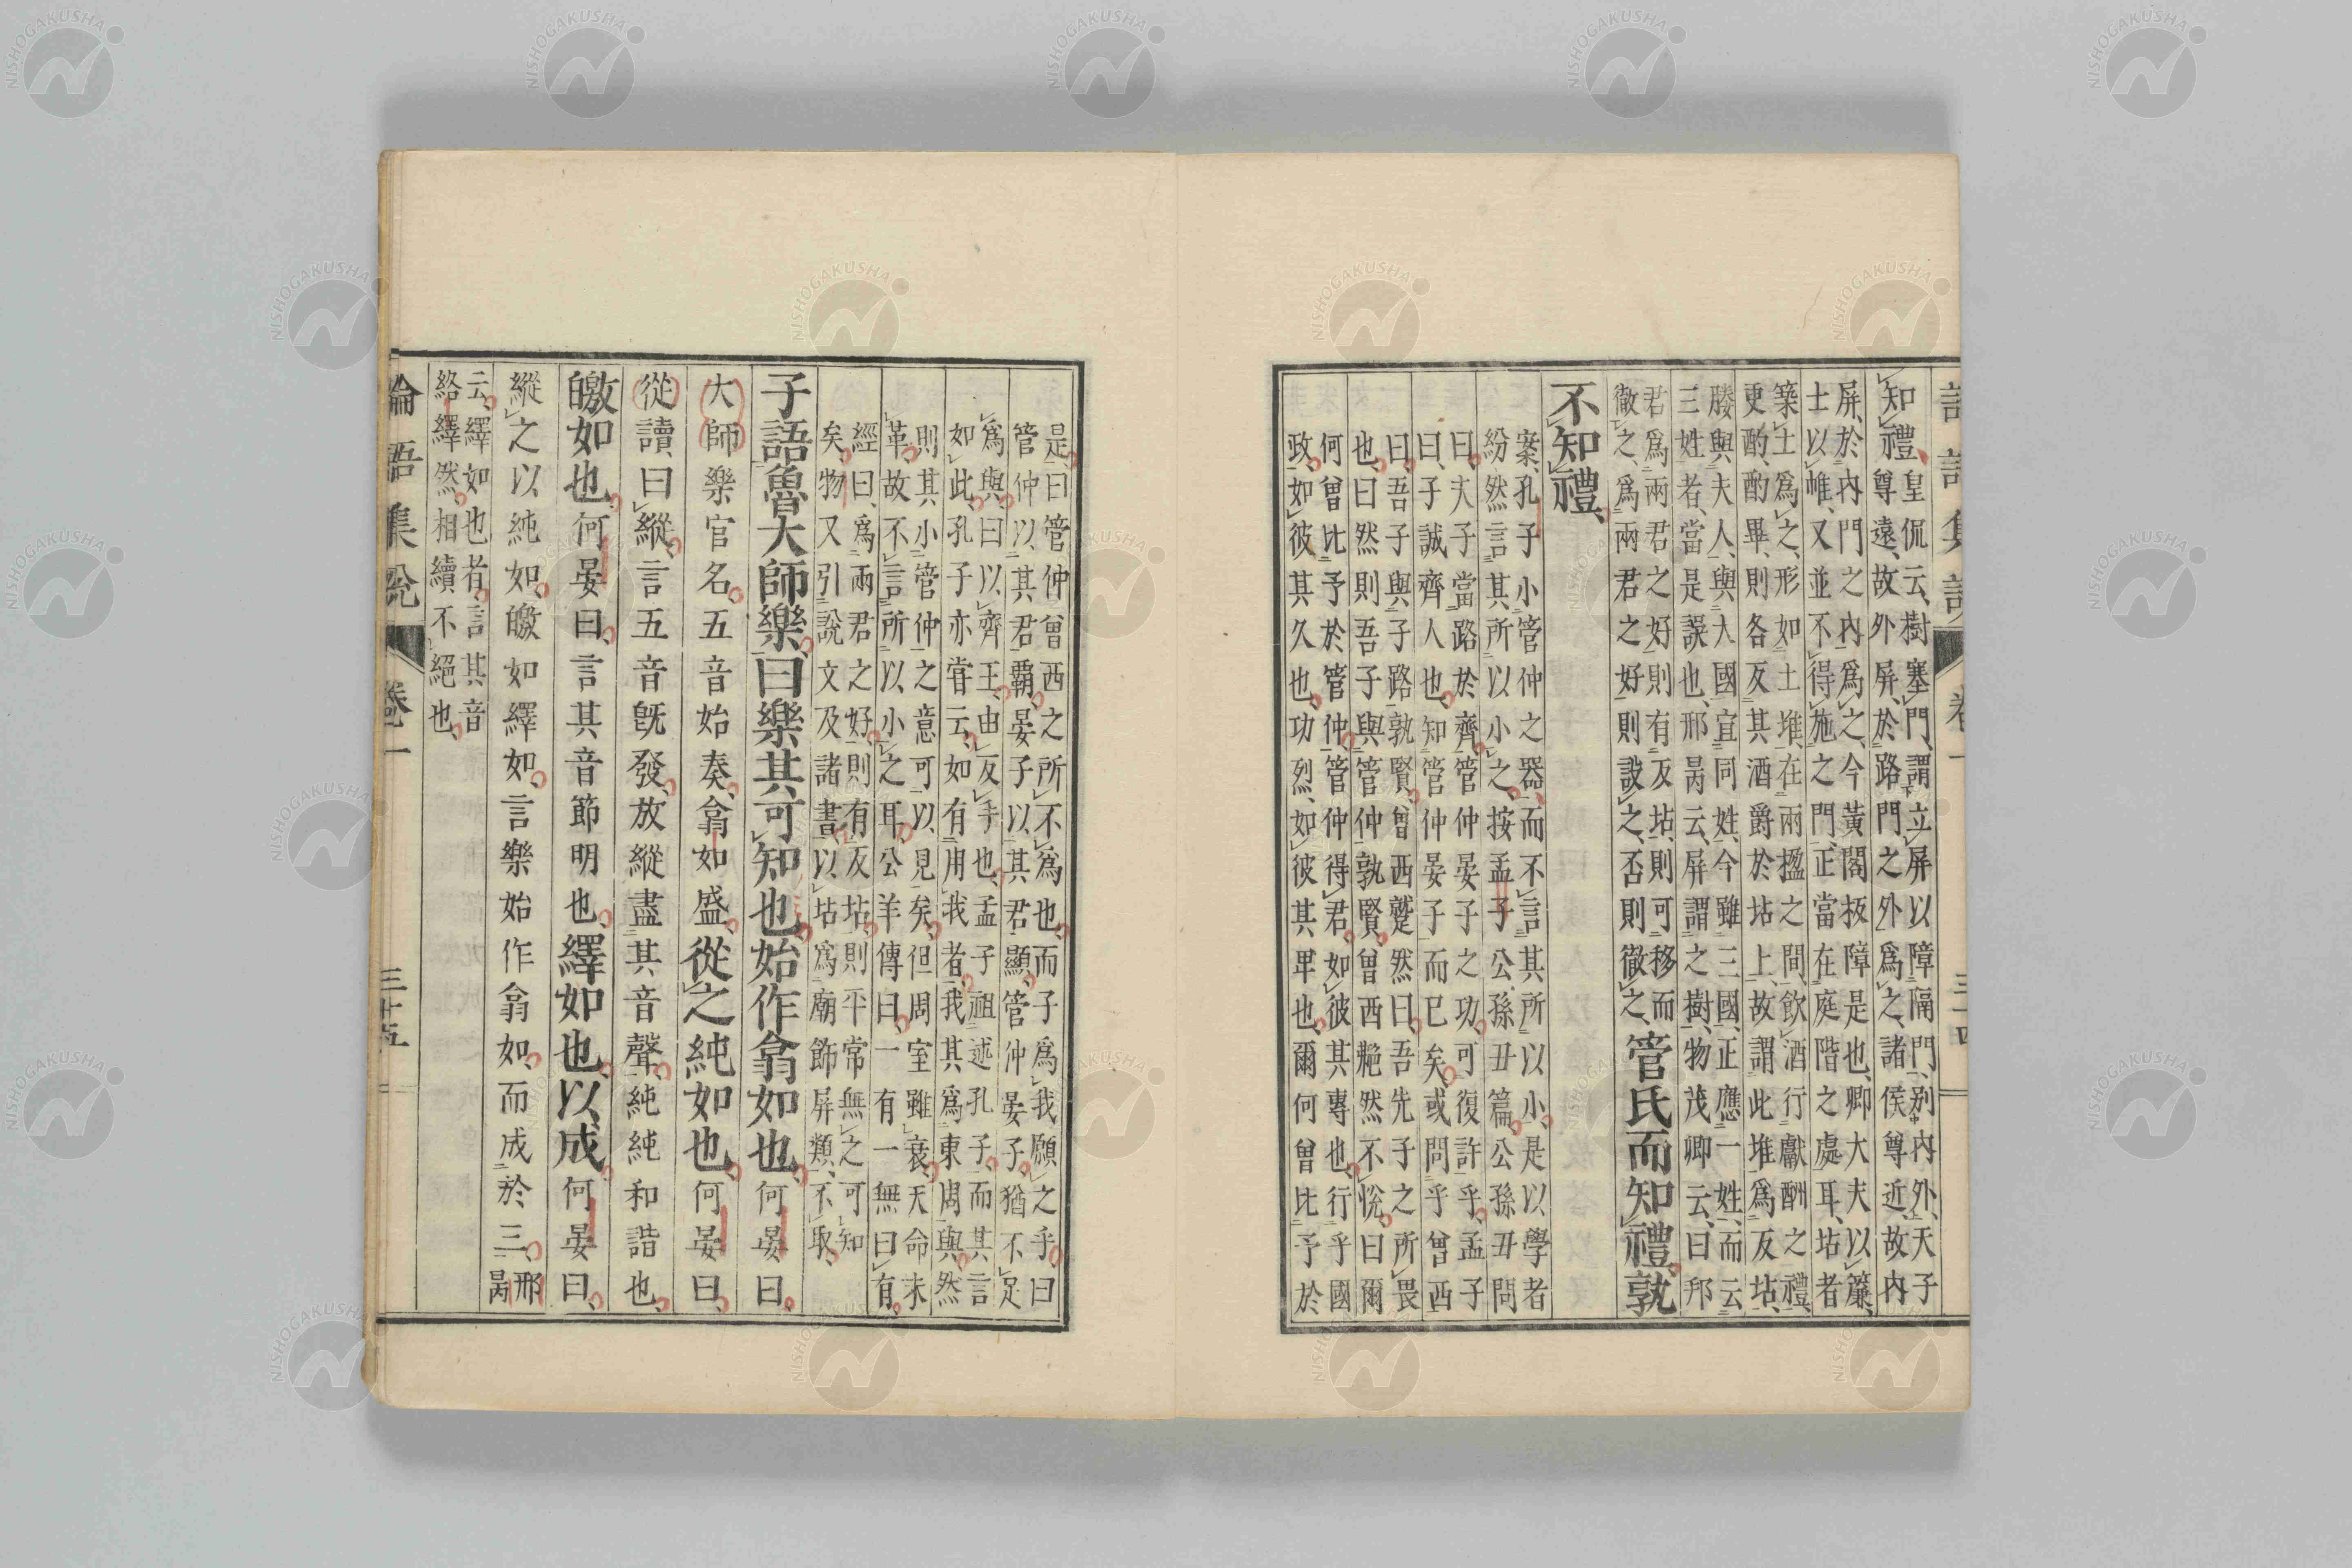 知禮、皇侃云、樹塞門、謂立屏以障隔門、別內外、天子
尊遠、故外屏、於路門之外爲之、諸侯尊近、故內
屏、於內門之內爲之、今黃閣板障是也、卿大夫以簾、
士以帷、又並不得施之門、正當在庭階之處耳、坫者
築土爲之、形如土堆、在兩楹之間、飲酒行獻酬之禮、
更酌、酌畢、則各反其酒爵於坫上、故謂此堆爲反坫、
媵與夫人、與大國宜同姓、今雖三國、正應一姓、而云
三姓者、當是誤也、邢昺云、屏謂之樹、物茂卿云、曰邦
君爲兩君之好、則有反坫、則可移而
徹之、爲兩君之好則設之、否則徹之、管氏而知禮、孰
不知禮、
案、孔子小管仲之器、而不言其所以小、是以學者
紛然言其所以小之、按孟子公孫丑篇、公孫丑問
曰、夫子當路於齊、管仲晏子之功、可復許乎、孟子
曰、子誠齊人也、知管仲晏子而已矣、或問乎曾西
曰、吾子與子路孰賢、曾西蹵然曰、吾先子之所畏
也、曰然則吾子與管仲孰賢、曾西艴然不悅、曰爾
何曾比予於管仲、管仲得君、如彼其專也、行乎國
政、如彼其久也、功烈、如彼其卑也、爾何曾比予於
是、曰管仲曾西之所不爲也、而子爲我願之乎、曰
管仲以其君霸、晏子以其君顯、管仲晏子、猶不足
爲與、曰以齊王、由反手也、孟子祖述孔子、而其言
如此、孔子亦嘗云、如有用我者、我其爲東周與、然
則其小管仲之意可以見矣、但周室雖衰、天命未
革、故不言所以小之耳、公羊傳曰、一有一無曰有、
經曰、爲兩君之好、則有反坫、則平常無之可知
矣、物又引說文及諸書、以坫爲廟飾屏類、不取、
子語魯大師樂、曰樂其可知也、始作翕如也、何晏曰、
大師樂官名、五音始奏、翕如盛、從之純如也、何晏曰、
從讀曰縱、言五音旣發、放縱盡其音聲、純純和諧也、
皦如也、何晏曰、言其音節明也、繹如也、以成、何晏曰、
縱之以純如、皦如繹如、言樂始作翕如、而成於三、邢昺
云、繹如也者、言其音
絡繹然、相續不絕也、
論語集說
卷一
三十五
NISHOGAKUSHA